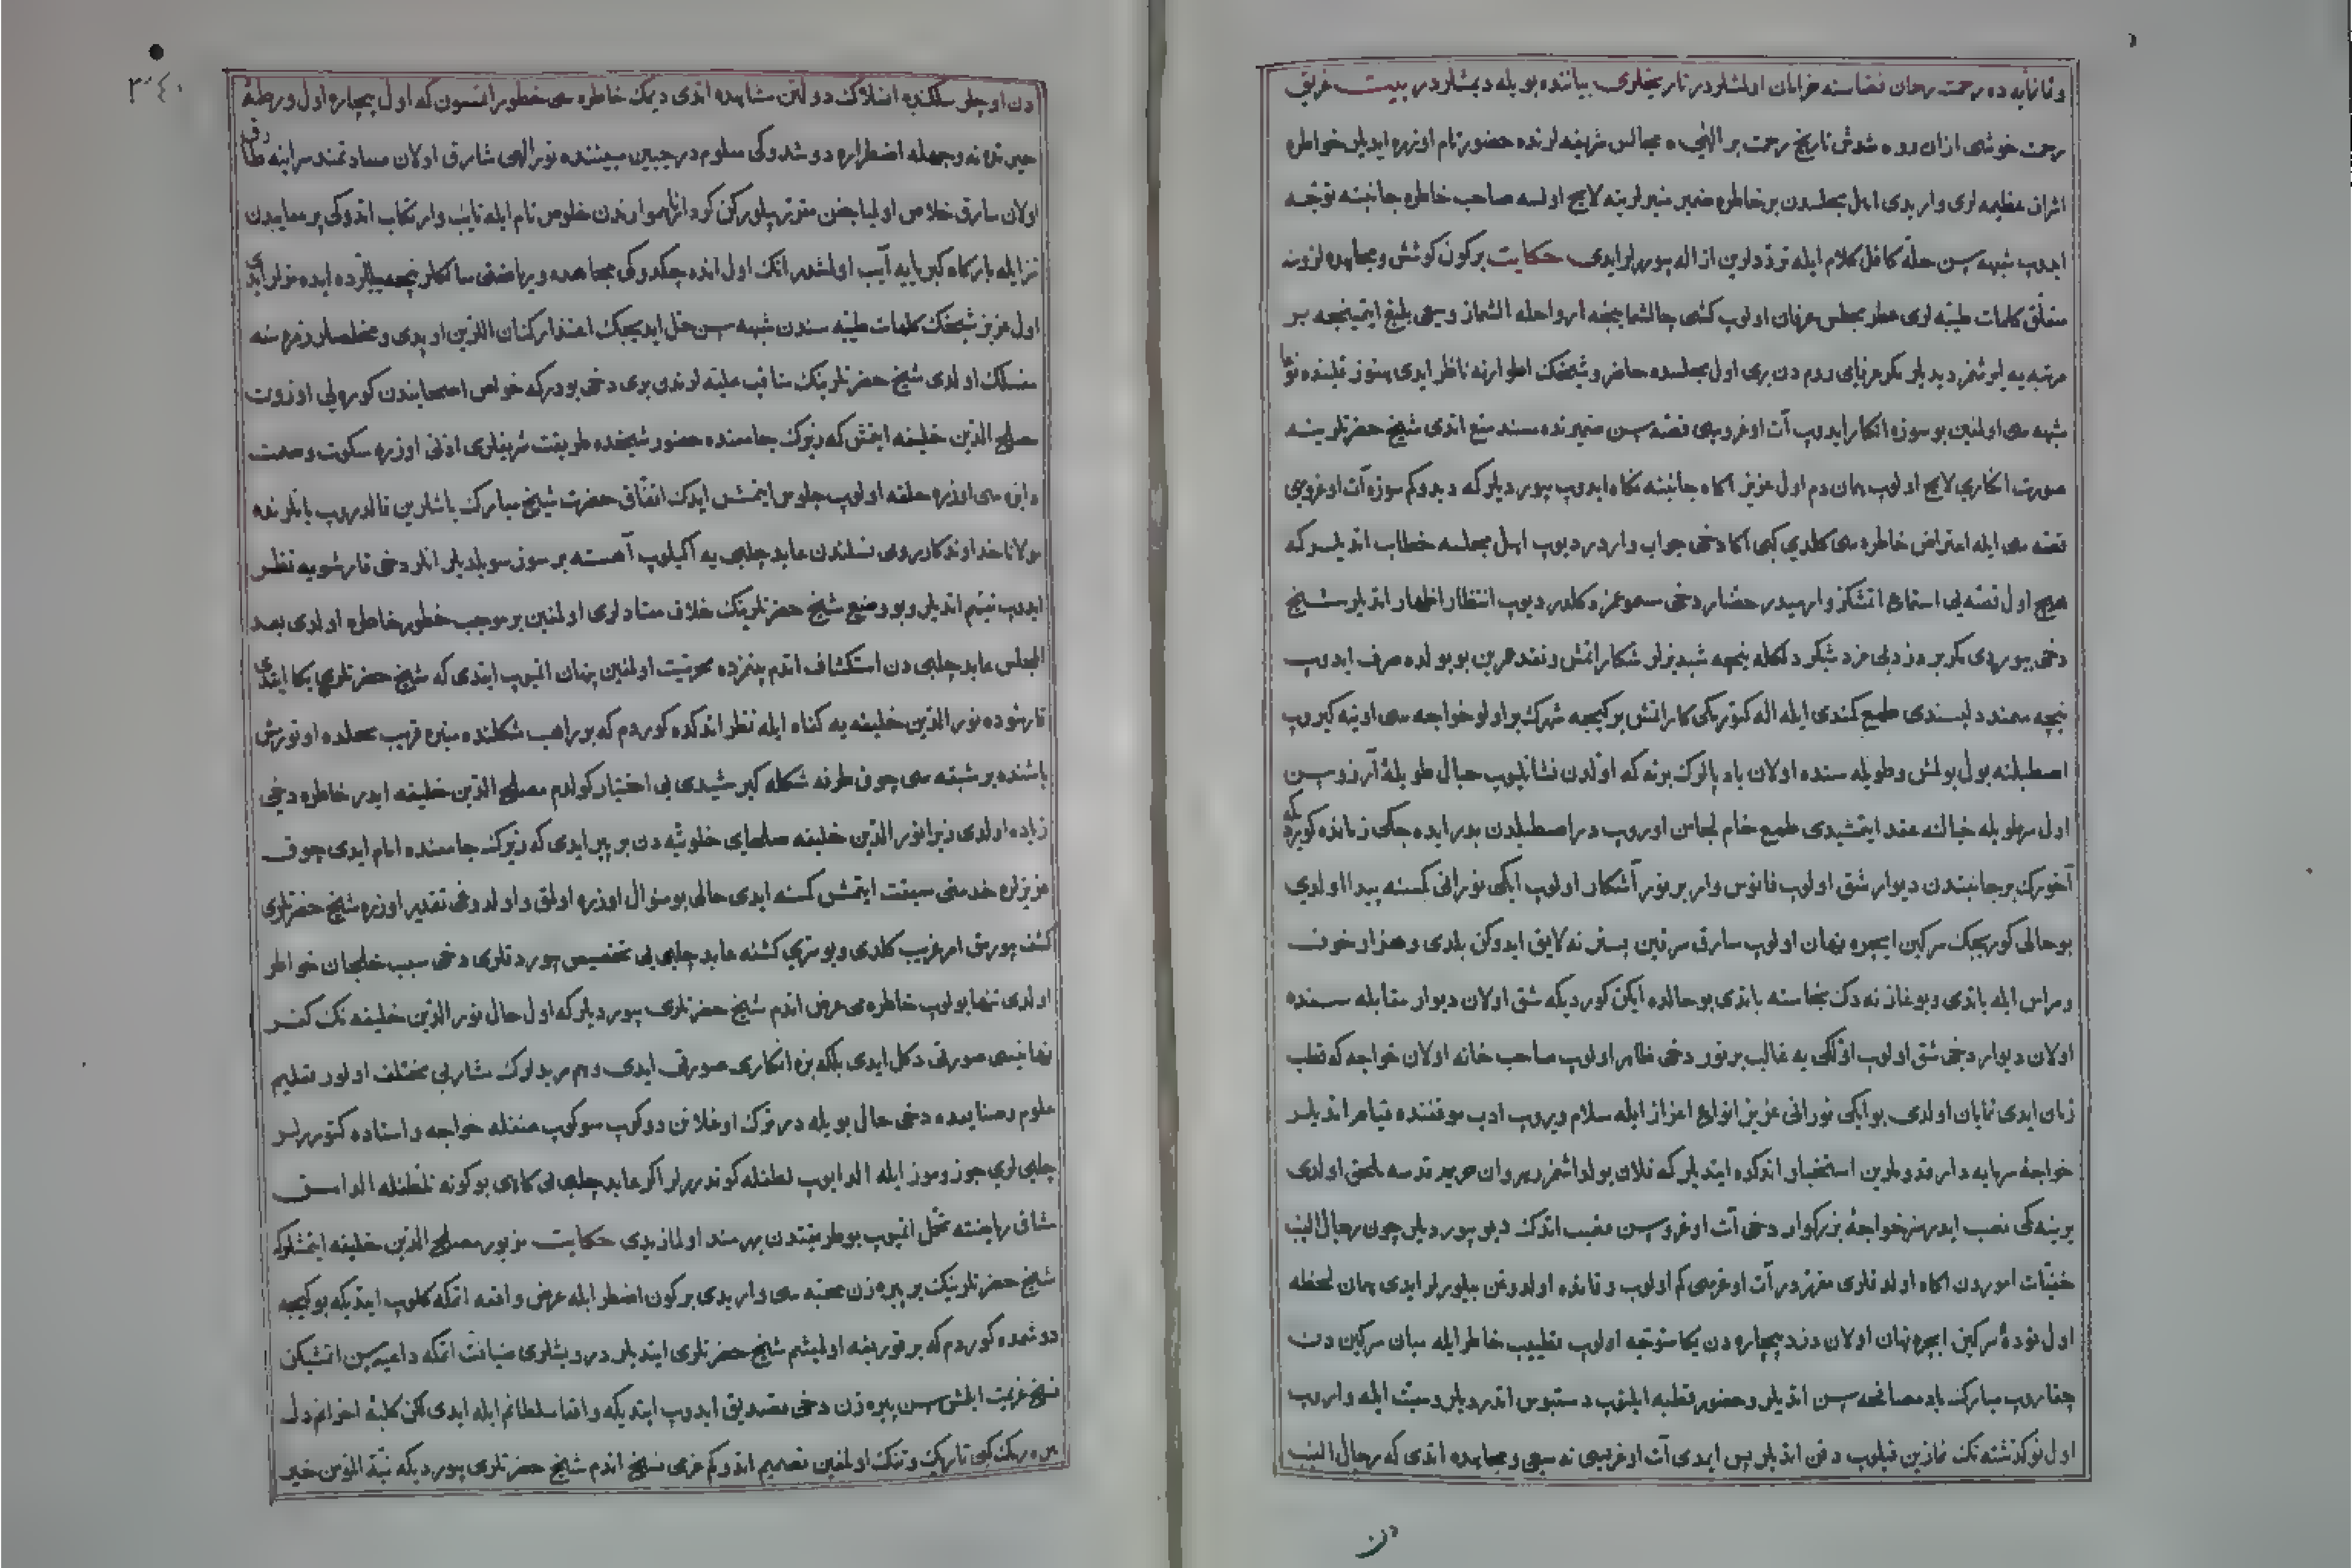 رحمت خوشی ازان روه شوش تاریخ رحمت بر الهی ه مجالس شریفه لرنده حضور تام اوزره ایدیلر خواطره
اشراف عظیمه لری وار یدی اهل مجلسدن بر خاطره ضمیر منیر لرینه لایح اولسه صاحب خاطره جانبنه توجه
ایدوب شبهه سن حله کافل کلام ایله ترددلرین ازاله بیوررلر ایدی حکایت برکون کوشش و مجاهده لزومنه
متعلق کلمات طیبه لری عطر مجلس عرفان اولوب کشی چالشماینجه
مرتبه یه ایرشمز دیدیلر مکر عرفای روم دن بری اول مجلسده حاضر و شیخک اطوارنه ناظر ایدی هنوز قلبنده
شبهه سی اولمغین بو سوزه انکار ایدوب آت اوغروسی قصه سن ضمیرنده سند منع اتدی شیخ حضرتلرینه
صورت انکاری لایح اولوب همان دم اول عزیز آکاه جانبنه نکاه ایدوب بیوردیلر که دیدوکم سوزه آت اوغروسی
قصه سی ایله اعتراض خاطره سی کلدی کبی اکا دخی جواب واردر دیوب اهل مجلسه خطاب اتدیلر که
هیچ اول قصه یی استماع اتمشکز وارمیدر حضار دخی مسموعمز دکلدر دیوب انتظار اظهار اتدیلر شیخ
دخی بیوردی مکر بر دزد بی مزد شبکرد لکله نیچه شبدیزلر شکار اتمش و نقد عمرین بو یولده صرف ایدوب
نیچه سمند دلپسندی طمع کمندی ایله اله کتورمکی کار اتمش بر کیجه شهرک بر اولو خواجه سی اوینه کیروب
اصطبلنه یول بولمش و طویله سنده اولان باد پالرک برنه که اوکدن نشانلیوب حبال طویلۀ آرزوسن
اول سهلویله خیالنه عقد ایتمشیدی طمع خام لجامن اوروب در اصطبلدن بدر ایده جکی زمانده
آخورک بر جانبندن دیوار شق اولوب فانوس وار بر نور آشکار اولوب ایکی نورانی کمسنه پیدا اولدی
بو حالی کوریجک سرکین ایچره نهان اولوب سارق سرقین بستر نه لایق ایدوکن بلدی و هزار خوف
و هراس ایله یاتدی و بوغازنه دک نجاسته باتدی بو حالده ایکن کوردیکه شق اولان دیوار مقابله سنده
اولان دیوار دخی شق اولوب اولکی یه غالب بر نور دخی ظاهر اولوب صاحب خانه اولان خواجه که قطب
زمان ایدی نمایان اولدی بو ایکی نورانی عزیز انواع اعزاز ایله سلام ویروب ادب موقفنده قیام اتدیلر
خواجۀ سرمایه دار قدوملرین استخبار اتدکده ایتدیلر که فلان یولداشمز رهروان حریم قدسه ملحق اولدی
یرینه کی نصب ایدرسز خواجۀ بزرکوار دخی آت اوغروسن منصب اتدک دیو بیوردیلر چون رجال الغیب
خفیات اموردن آکاه اولدقلری مقرردر آت اوغریسی کم اولوب و قانده اولدوغن بیلورلر ایدی همان لحظه
اول تودۀ سرکین ایچره نهان اولان دزد بیچاره دن یکا متوجه اولوب تطییب خاطر ایله میان سرکین دن
چقاروب مبارک باد مصافحه سن اتدیلر و حضور قطبه ایلتوب دستبوس اتدردیلر و میت ایله واروب
اول نو کذشته نک نمازین قیلوب دفن اتدیلر پس ایمدی آت اوغریسی نه سعی و مجاهده اتدی که رجال الغیب
دن
٣٤٠
دن اوچلر سلکنده انسلاک دولتن مشاهده اتدی دیمک خاطره سی خطور اتمسون که اول بیچاره اول ورطۀ
حیرتده نه وجهله اضطراره دوشدوکی معلومدر جبین مبیننده نور الهی شارق اولان سعادتمند سراینه
اولان سارق خلاص اولمیاجغن مقرر بیلورکن
نیاز ایله بارکاه کبریایه آیب اولمشدر انک اول انده چکدوکی مجاهده و ریاضتی سالکلر نیچه ییللرده ایده مزلر
اول عزیز شیخک کلمات طیبه سندن شبهه سن حل ایدیجک اعتذار کنان اللرین اوپدی و مخلصلر زمره سنه
منسلک اولدی شیخ حضرتلرینک مناقب علیه لرندن بری دخی بودرکه خواص اصحابندن کوره لی اوزون
مصلح الدین خلیفه ایتمش که زیرک جامعنده حضور شیخده طریقت شریفلری ادبی اوزره سکوت و صمت
دایره سی اوزره حلقه اولوب جلوس ایتمش ایدک اتفاق حضرت شیخ مبارک باشلرین قالدروب یانلرنده
مولانا خداوندکار روی نسلندن عابد چلبی یه اکیلوب آهسته بر سوز سویلدیلر انلر دخی قارشویه نظر
ایدوب تبسم اتدیلر و بو وضع شیخ حضرتلرینک خلاف معتادلری اولمغین بر موجب خطور خاطره اولدی بعد
المجلس عابد چلبی دن استکشاف اتدم بینمزده محرمیت اولمغین پنهان اتمیوب ایتدی که شیخ حضرتلری بکا ایتدی
قارشوده نور الدین خلیفه یه کناه ایله نظر اتدکده کوردم که بر راهب شکلنده منبره قریب محلده اوتورمش
باشنده بر شبقه سی چوق طرفه شکله کیرمشیدی بی اختیار کولدم مصلح الدین خلیفه ایدر خاطره دخی
زیاده اولدی زیرا نور الدین خلیفه صلحای خلوتیه دن بر پیر ایدی که زیرک جامعنده امام ایدی چوق
عزیزلره خدمتی سبقت ایتمش کمسنه ایدی حالی بو منوال اوزره اولمق و اولدوغی تقدیر اوزره شیخ حضرتلری
کشف بیورمق امر غریب کلدی و بو سری کشفه عابد چلبی یی تخصیص بیوردقلری دخی سبب خلجان خواطر
اولدی تنها بولوب خاطره می عرض اتدم شیخ حضرتلری بیوردیلر که اول حال نور الدین خلیفه نک کفر
نهانیسی صورتی دکل ایدی بلکه بزه انکاری صورتی ایدی و هم مریدلرک مشاربی مختلف اولور تعلیم
علوم و صنایعده دخی حال بویله در ترک اوغلانن دوکوب سوکوب عنفله خواجه و استاده کتوررلر
چلبی لری جوز و موز ایله الدایوب لطفله کوندررلر اکر عابد چلبی یی کاهی بو کونه تلطفله الدامسق
مشاق ریاضته تحمل اتمیوب بو طریقتدن بهره مند اولمازیدی حکایت مزبور مصلح الدین خلیفه ایتمشلرکه
شیخ حضرتلرینک بر پیره زن محبه سی وار یدی برکون اضطرار ایله عرض واقعه اتمکه کلوب ایتدیکه بو کیجه
دوشمده کوردم که بر قوربغه اولمشم شیخ حضرتلری ایتدیلر درویشلری ضیافت اتمکه داعیه سن اتمشیکن
فسخ عزیمت ایلمش سن پیره زن دخی تصدیق ایدوب ایتدیکه واقعا سلطانم ایله ایدی لکن کلبۀ احزانم دل
مرده ریک کبی تاریک و تنک اولمغین تصمیم اتدوکم عزمی فسخ اتدم شیخ حضرتلری بیوردیکه نیة المؤمن خیر